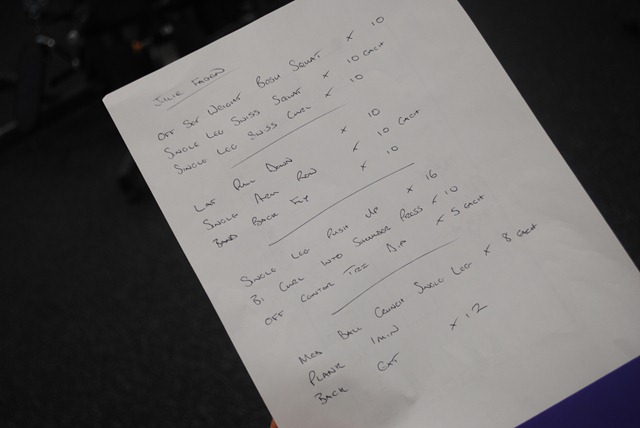 JULIE
OFF SET WEIGHT BOSU SQUAT × 10
SINGLE LEG SWISS SQUAT × 10 EACH
SINGLE LEG SWISS CURL × 10
LAT PULL DOWN × 10
SINGLE ARM ROW × 10 EACH
BAND BACK FLY × 10
SINGLE LEG PUSH UP × 16
BI CURL INTO SHOULDER PRESS × 10
OFF CENTER DIP × 5 EACH
MED BALL CRUNCH SINGLE LEG × 8 EACH
PLANK 1 MIN
BACK EXT × 12